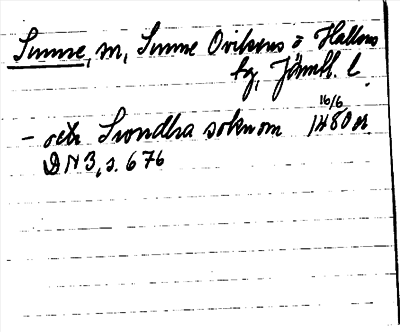 Sunne, m, Sunne Ovikens o Hallens
tg, Jämtl. l.
16/6
– och Swndha soknom 1480 or
DN 3, s. 676